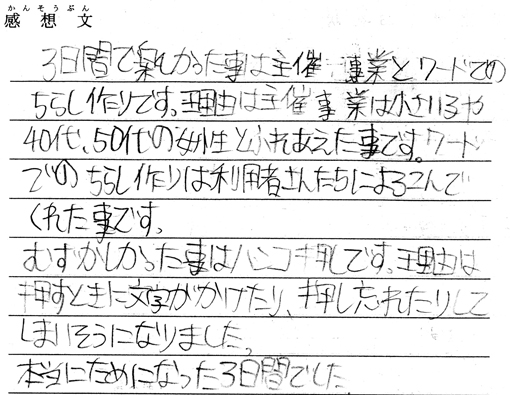 感想文
3日間で楽しかった事は主催事業とワードでの
ちらし作りです。理由は主催事業は小さい子や
40代、50代の女性とふれあえた事です。ワード
でのちらし作りは利用者さんたちによろこんで
くれた事です。
むずかしかった事はハンコ押しです。理由は
押すときに文字がかけたり、押し忘れたりして
しまいそうになりました。
本当にためになった3日間でした